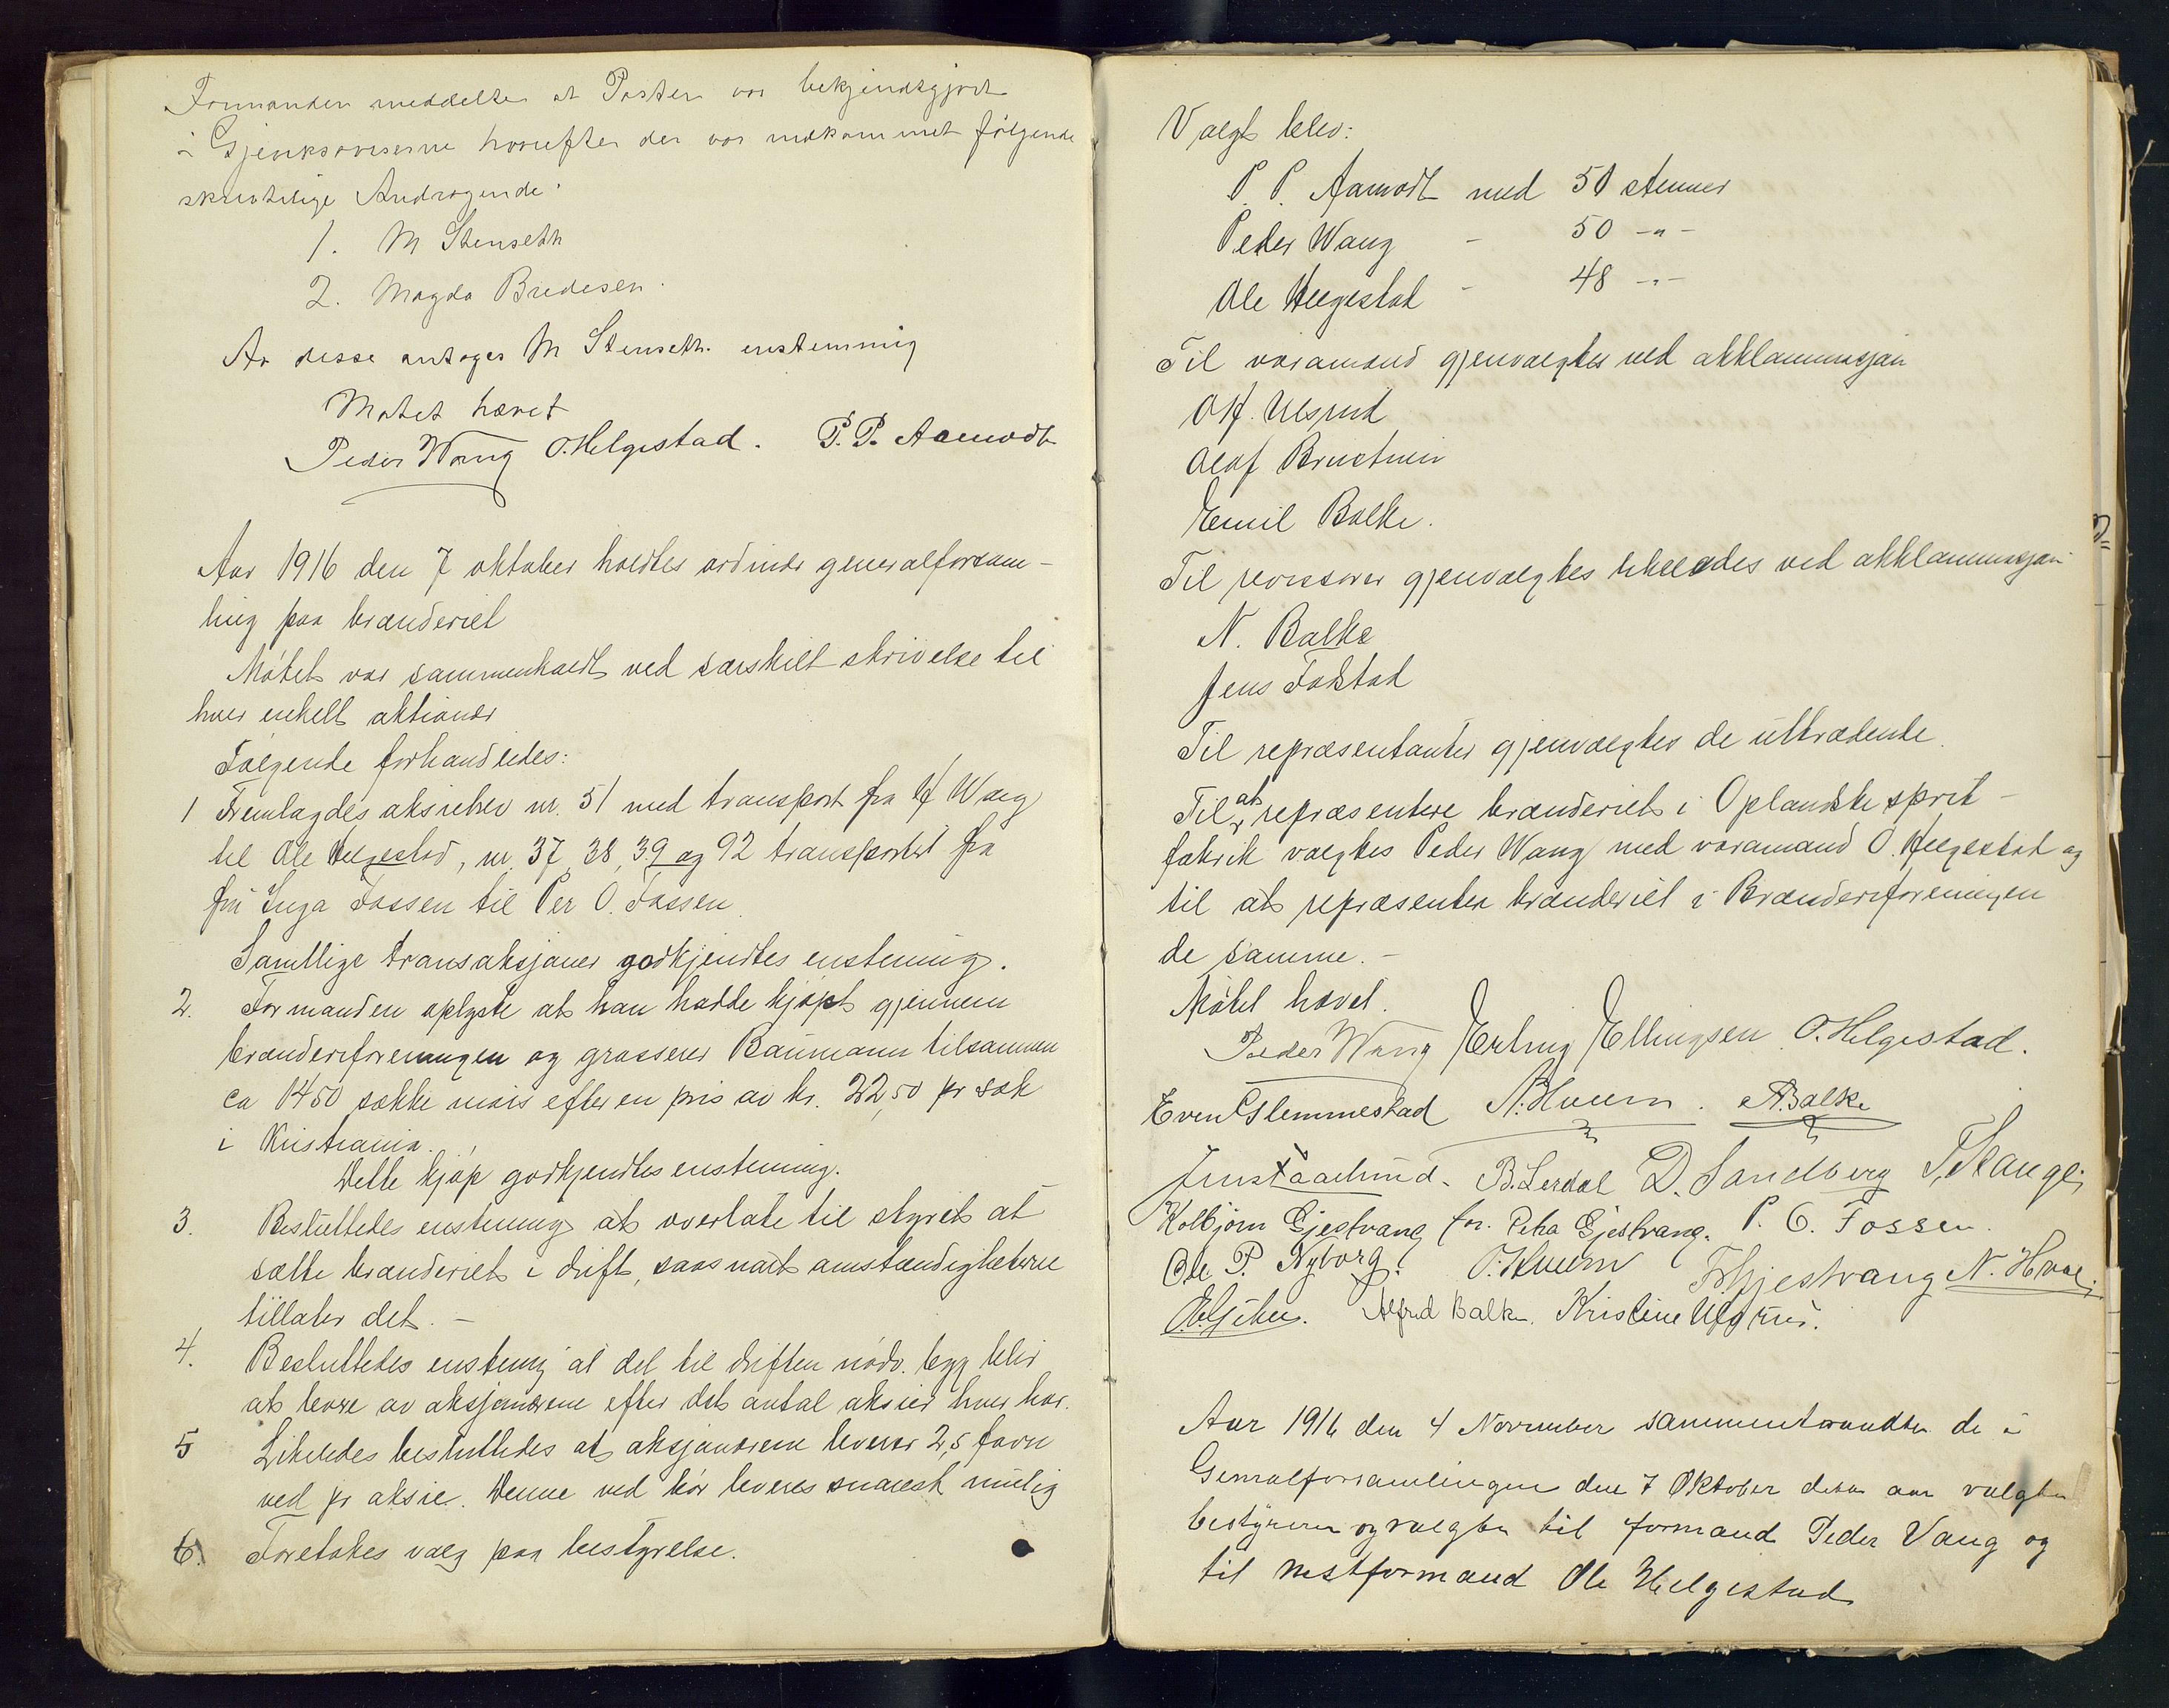 Formanden meddelte at Posten var bekjendtgjort
i Gjøviksaviserne hvorefter der var indkommet følgende
skriftlige Andragende:
1. M Stenseth
2. Magda Bredesen.
Av disse antoges M Stenseth. enstemmig
Møtet hævet
Peder Wang O. Helgestad. P. P. Aamodt
Aar 1916 den 7 oktober holdtes ordinær generalforsam-
ling paa brænderiet
Møtet var sammenkaldt ved særskilt skrivelse til
hver enkelt aktionær
Følgende forhandledes:
1 Fremlagdes aksiebrev nr. 51 med transport fra H Wang
til Ole Helgestad, nr. 37, 38, 39 og 92 transportert fra
fru Inga Fossen til Per O. Fossen
Samtlige transaksjoner godkjendtes enstemig.
2. Formanden oplyste at han hadde kjøpt gjennem
brænderiforeningen og grosserer Baumann tilsammen
ca 1450 sække mais efter en pris av kr. 22,50 pr sæk
i Kristiania.
Dette kjøp godkjendtes enstemig.
3. Besluttedes enstemig at overlate til styret at
sætte brænderiet i drift, saasnart omstændigheterne
tillater det. –
4. Besluttedes enstemig at det til driften nødv. bygg blir
at levere av aksjonærene efter det antal aksier hver har.
5 Likeledes besluttedes at aksjonærene leverer 2,5 favn
ved pr aksie. Denne ved bør leveres snarest mulig
6. Foretokes valg paa bestyrelse.
Valgt blev:
P. P. Aamodt med 51 stemmer
Peder Wang - 50 -"-
Ole Helgestad - 48 -"-
Til varamænd gjenvalgtes ved akklammasjon
O. H. Ulsrud
Olaf Brustuen
Emil Balke.
Til revisorer gjenvalgtes likeledes ved akklammasjon
N. Balke
Jens Fodstad
Til repræsentanter gjenvalgtes de uttrædende.
Til at repræsentere brænderiet i Oplandske sprit-
fabrik valgtes Peder Wang med varamand O. Helgestad og
til at repræsentere brænderiet i Brænderiforeningen
de samme. –
Møtet hævet.
Peder Wang Erling Ellingsen O. Helgestad.
Even Slemmestad N. Huem. A. Balke
B. Lerdal D. Sandberg T. Stange
Kolbjørn Gjestvang for Petra Gjestvang. P. O. Fossen.
Ole P. Nyborg. O. Huem Gjestvang N. Hoel.
Alfred Balke. Kristine Ulsrud.
Aar 1916 den 4 November sammentraadte de i
Generalforsamlingen den 7 Oktober dette aar valgte
bestyrere og valgtes til formand Peder Vang og
til nestformand Ole Helgestad